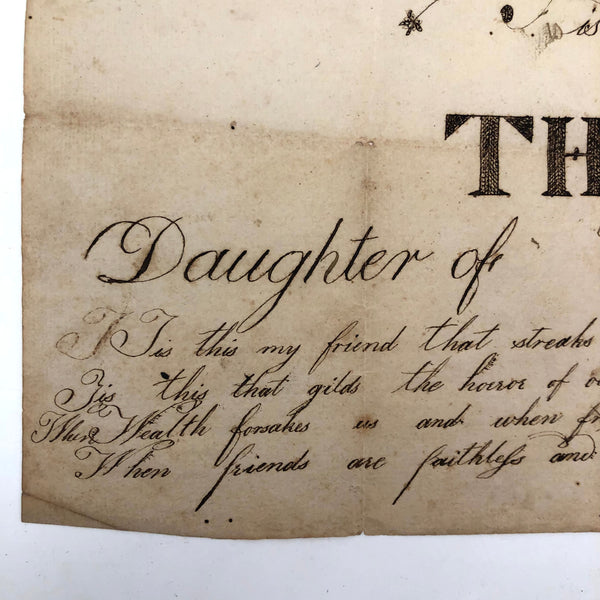 is
TH
Daughter of
Tis this my friend that streaks
Tis this that gilds the horror of
When Wealth forsakes us and when
When friends are faithless and